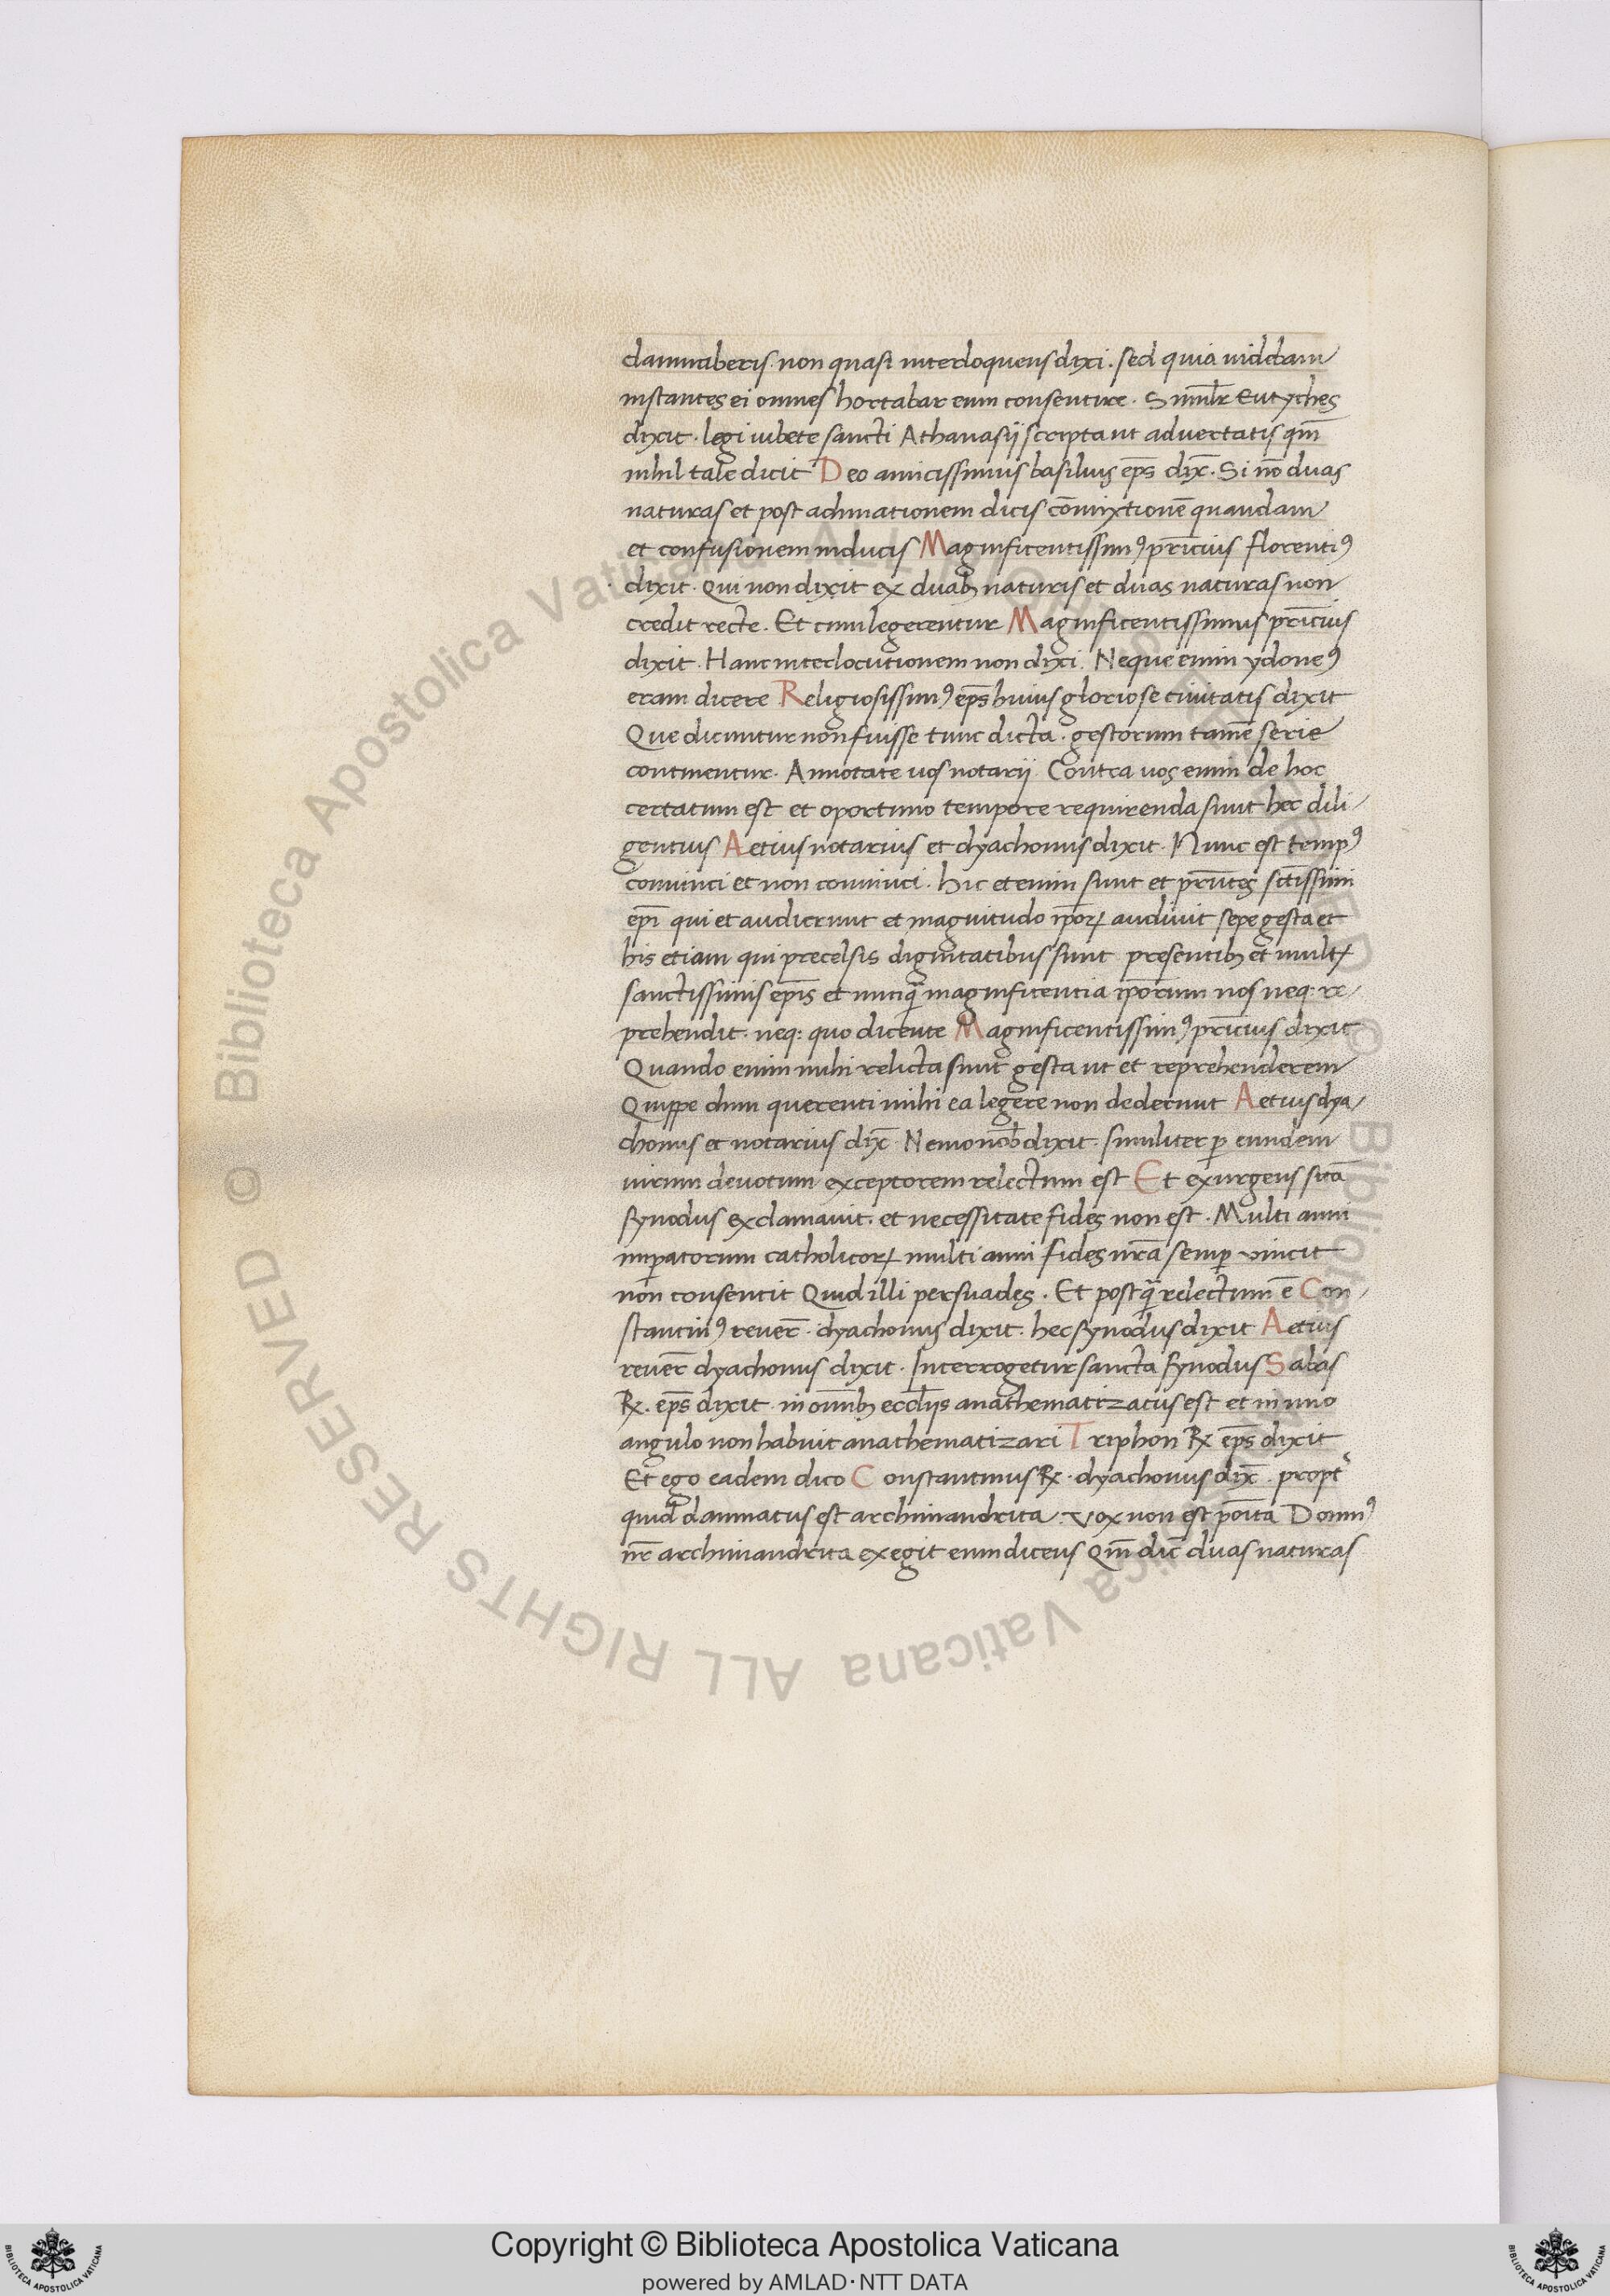 damnaberis. non quasi interloquens dixi. sed quia uidebam
instantes ei omnes hortabar eum consentire. Simil̄r Eutyches
dixit. legi iubete sancti Athanasij scripta ut aduertatis qm̄
nihil tale dicit Deo amicissimus basilius ep̄s dix̄. Si nō duas
naturas et post adunationem dicis cōmixtionē quandam
et confusionem inducis Magnificentissimꝰ pr̄icius florentiꝰ
dixit. Qui non dixit ex duabꝫ naturis et duas naturas non
credit recte. Et cum legerentur Magnificentissimus pr̄icius
dixit. Hanc interlocutionem non dixi. Neque enim ydoneꝰ
eram dicere Religiosissimꝰ ep̄s huius gloriose ciuitatis dixit
Que dicuntur non fuisse tunc dicta. gestorum tamē serie
continentur. Annotate uos notarij. Contra uos enim de hoc
certatum est et oportuno tempore requirenda sunt hec dili/
gentius Aetius notarius et dyachonus dixit. Nunc est tempꝰ
conuinci et non conuinci. hic etenim sunt et pr̄ntes sc̄tissimi
ep̄i qui et audierunt et magnitudo ip̄oꝝ audiuit sepe gesta et
his etiam qui precelsis dignitatibus sunt presentibꝫ et multꝭ
sanctissimis ep̄is et nunq̄ magnificentia ip̄orum nos neq: re/
prehendit. neq: quo dicente Magnificentissimꝰ pr̄icius dixit
Quando enim mihi relicta sunt gesta ut et reprehenderem
Quippe dum querenti mihi ea legere non dederunt Aetius dya/
chonus et notarius dix̄ Nemo nob̄ dixit. similiter ꝑ eundem
uirum deuotum exceptorem relectum est Et exurgens sc̄ta
synodus exclamauit. et necessitate fides non est. Multi anni
imꝑatorum catholicoꝝ multi anni fides nr̄a semꝑ vincit
non consentit Quid illi persuades. Et postq̄ relectum ē Con/
stantinꝰ reuer̄. dyachonus dixit. hec synodus dixit Aetius
reuer̄ dyachonus dixit. Interrogetur sancta synodus Sabas
℞. ep̄s dixit. in omn̄ibꝫ eccl̄ijs anathematizatus est et in uno
angulo non habuit anathematizari Triphon ℞ ep̄s dixit
Et ego eadem dico Constantinus ℞. dyachonus dix̄. propt̄
quid damnatus est archimandrita. Vox non est po͞ita Domnꝰ
nr̄ archimandrita exegit eum dicens Qm̄ dic̄ duas naturas
Copyright © Biblioteca Apostolica Vaticana
powered by AMLAD·NTT DATA
© Biblioteca Apostolica Vaticana ALL RIGHTS RESERVED
© Biblioteca Apostolica Vaticana ALL RIGHTS RESERVED
BIBLIOTECA APOSTOLICA VATICANA
BIBLIOTECA APOSTOLICA VATICANA